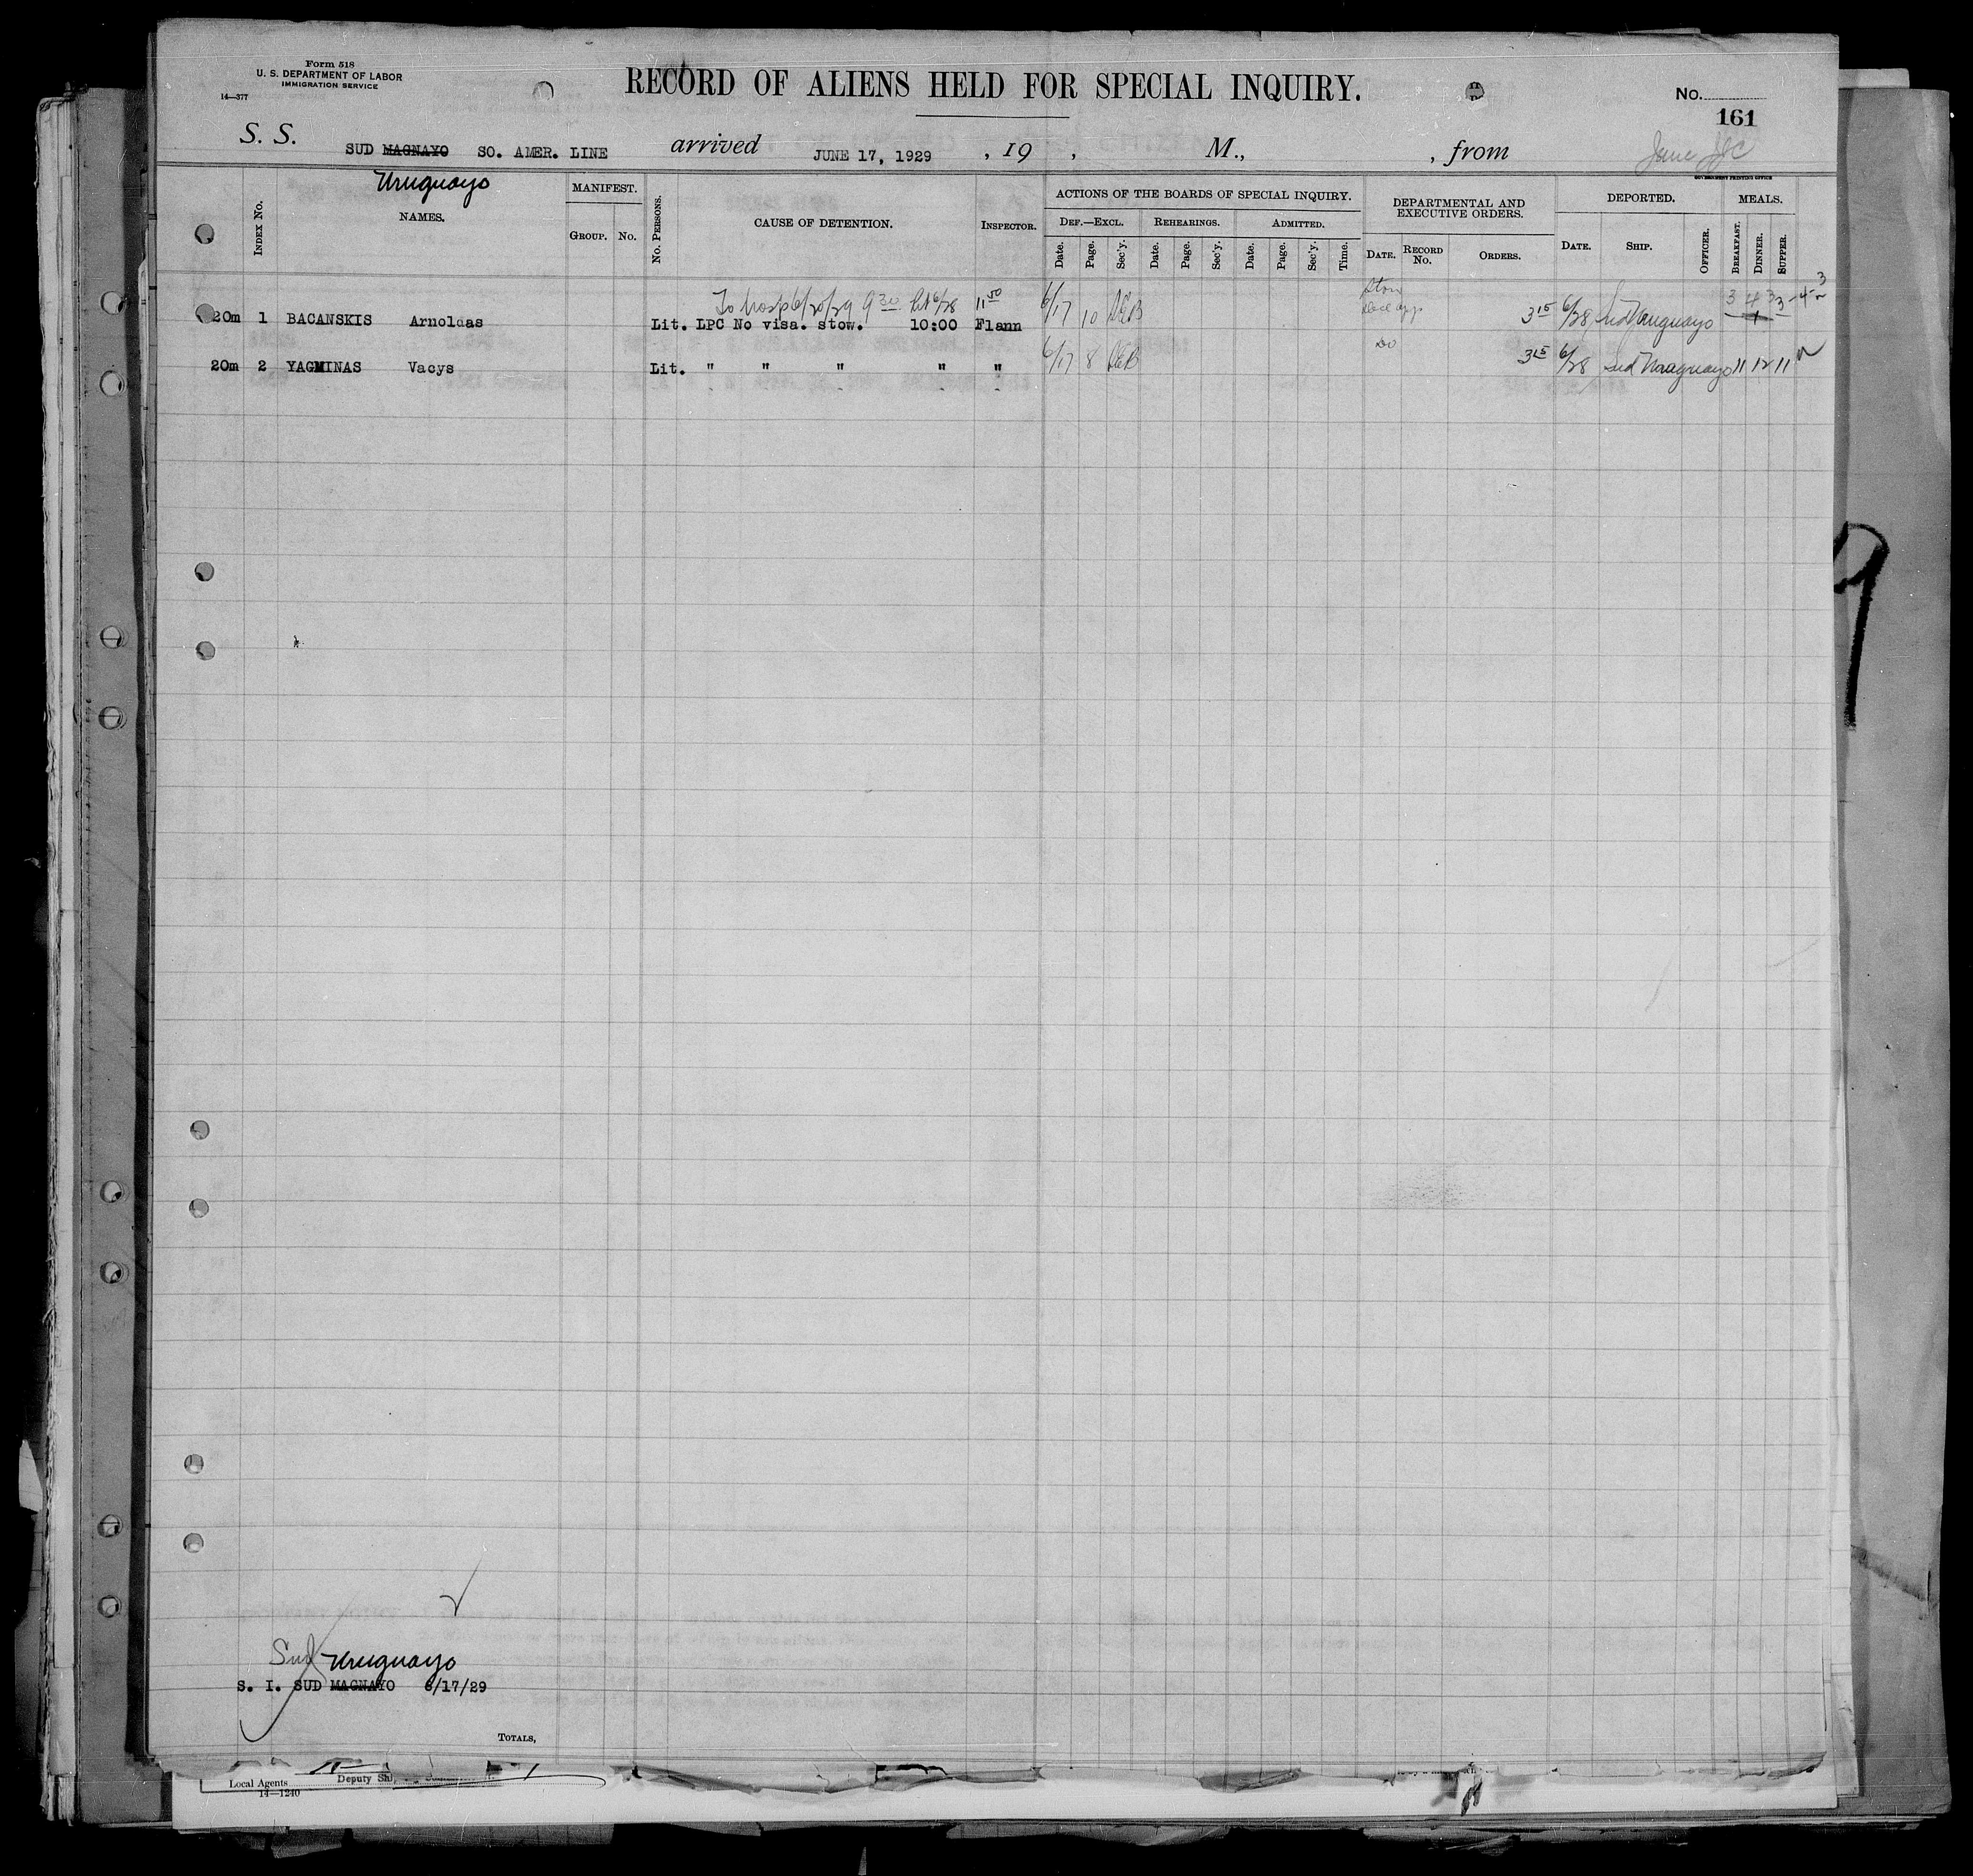 Form 518
U. S. DEPARTMENT OF LABOR
IMMIGRATION SERVICE
14—377
RECORD OF ALIENS HELD FOR SPECIAL INQUIRY.
No.
161
S. S. SUD MAGNAYO SO. AMER. LINE arrived JUNE 17, 1929 , 19 , M., , from
Uruguayo
GOVERNMENT PRINTING OFFICE
INDEX No. NAMES. MANIFEST. GROUP. No. No. PERSONS. CAUSE OF DETENTION. INSPECTOR. ACTIONS OF THE BOARDS OF SPECIAL INQUIRY. DEPARTMENTAL AND EXECUTIVE ORDERS. DEPORTED. MEALS.
DEF.—EXCL. REHEARINGS. ADMITTED.
Date. Page. Sec'y. Date. Page. Sec'y. Date. Page. Sec'y. Time. DATE. RECORD No. ORDERS. DATE. SHIP. OFFICER. BREAKFAST. DINNER. SUPPER.
To hosp 6/20/29 9 30 6/28 11 50
20m 1 BACANSKIS Arnoldas Lit. LPC No visa. stow. 10:00 Flann 6/17 10 3 15 6/28 Sud Uruguayo
Do
20m 2 YAGMINAS Vacys Lit. " " " " " 6/17 8 3 15 6/28 Sud Uruguayo 11 12 11
Sud Uruguayo
S. I. SUD MAGNAYO 6/17/29
TOTALS,
Local Agents
Deputy
14—1240